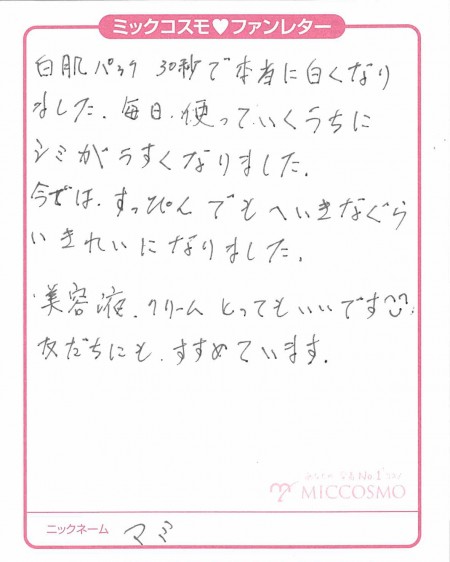 ミックコスモ♥ファンレター
白肌パック 30秒で本当に白くなり
ました。毎日、使っていくうちに
シミがうすくなりました。
今では、すっぴんでもへいきなぐら
いきれいになりました。
美容液、クリームとってもいいです
友だちにも、すすめています。
No.1
MICCOSMO
ニックネーム マミ